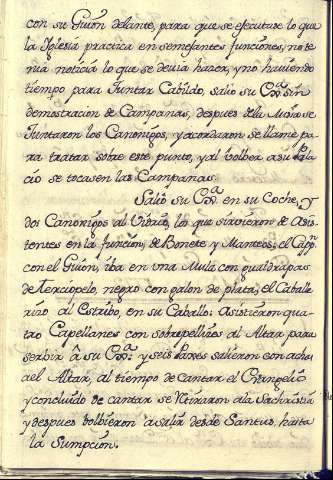 con su Guion delante, para que se efectuase lo que
la Iglesia practica en semejantes funciones, no te
nia noticia lo que se devia hazer, y no haviendo
tiempo para Juntar Cabildo, salio su Exª. sin
demostracion de Campanas, despues de la Missa se
Juntaron los Canonigos, y acordaron se llame pa
ra tratar sobre este punto, y al bolber a su Pala
cio se tocasen las Campanas.
Salio su Exª. en su Coche, y
dos Canonigos al Vidrio, los que sirvieron de Asis
tentes en la funcion, de Bonete y Manteos; el Capp.
con el Guion, iba en una Mula con gualdrapas
de Terciopelo, negro con galon de plata; el Caballe
rizo al Estribo, en su Caballo: Asistieron qua
tro Capellanes con sobrepellizes al Altar para
serbir â su Exª. y seis Pajes salieron con achas
a el Altar, al tiempo de cantar el Evangelio
y concluido de cantar se retiraron a la Sachristia
y despues bolbieron a salir desde Santus, hasta
la Sumpcion.